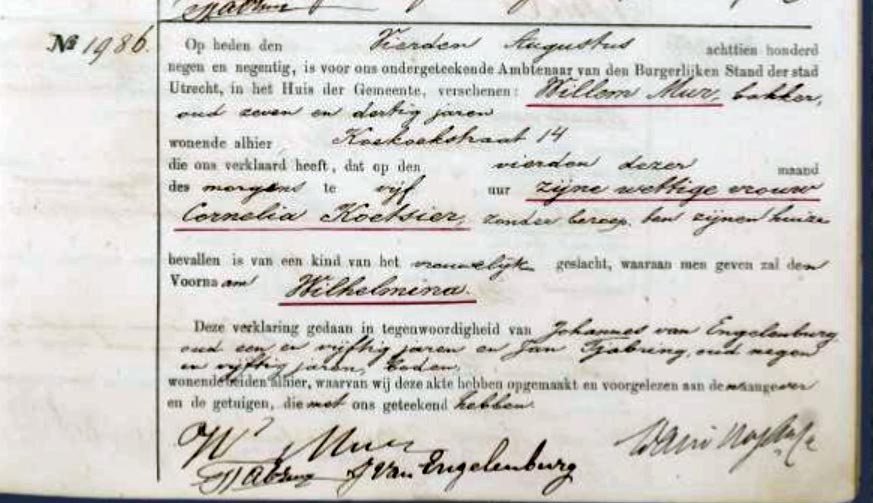 No 1986.
Op heden den Vierden Augustus achttien honderd
negen en negentig, is voor ons ondergeteekende Ambtenaar van den Burgerlijken Stand der stad
Utrecht, in het Huis der Gemeente, verschenen: Willem Mur, bakker,
oud zeven en dertig jaren
wonende alhier, Koekoekstraat 14
die ons verklaard heeft, dat op den vierden dezer maand
des morgens te vijf uur zijne wettige vrouw
Cornelia Koetsier, zonder beroep, ten zijnen huize
bevallen is van een kind van het vrouwelijk geslacht, waaraan men geven zal den
Voornaam Wilhelmina.
Deze verklaring gedaan in tegenwoordigheid van Johannes van Engelenburg
oud een en vijftig jaren en Jan Tjabring, oud negen
en vijftig jaren, boden,
wonende beiden alhier, waarvan wij deze akte hebben opgemaakt en voorgelezen aan den aangever
en de getuigen, die met ons geteekend hebben.
W Mur
JTjabring J Van Engelenburg